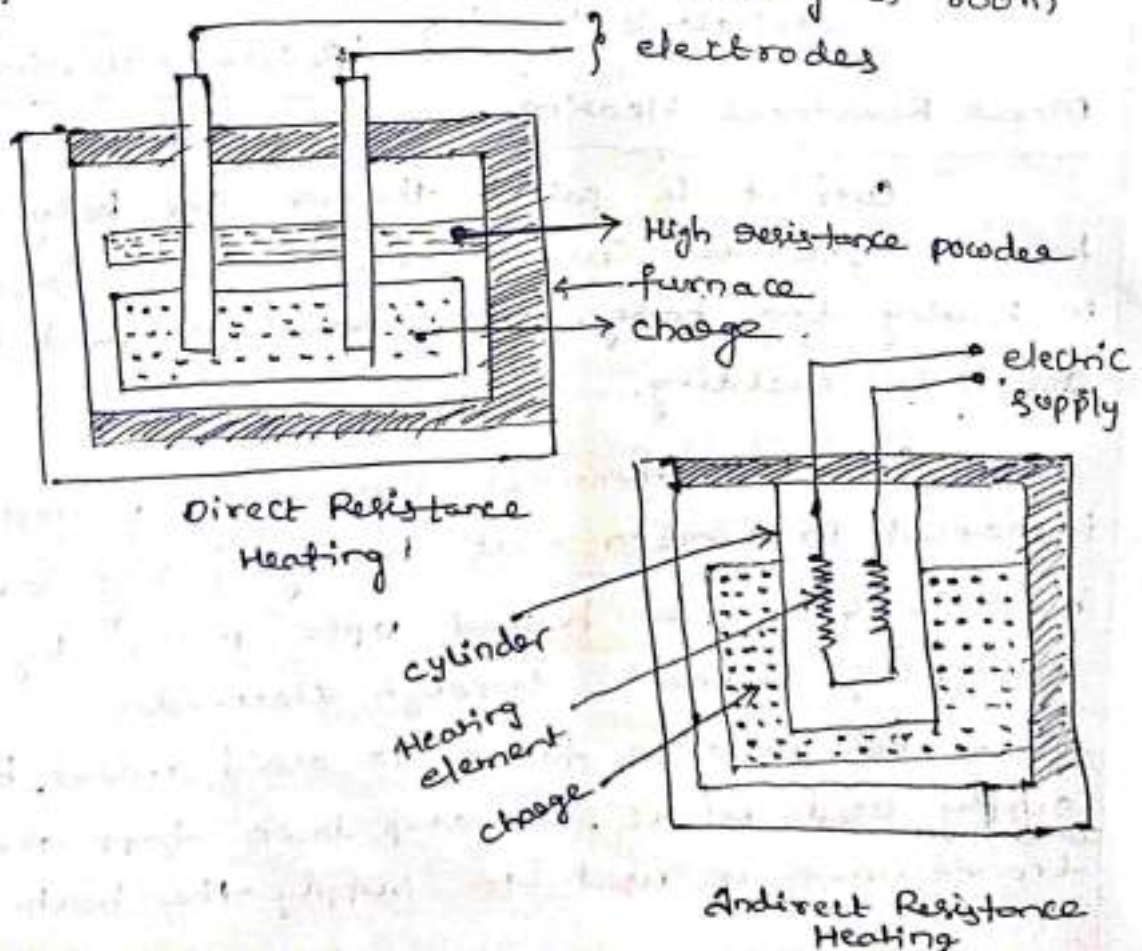 electrodes
High resistance powder
furnace
charge
electric
supply
Direct Resistance
Heating
cylinder
Heating
element
charge
Indirect Resistance
Heating